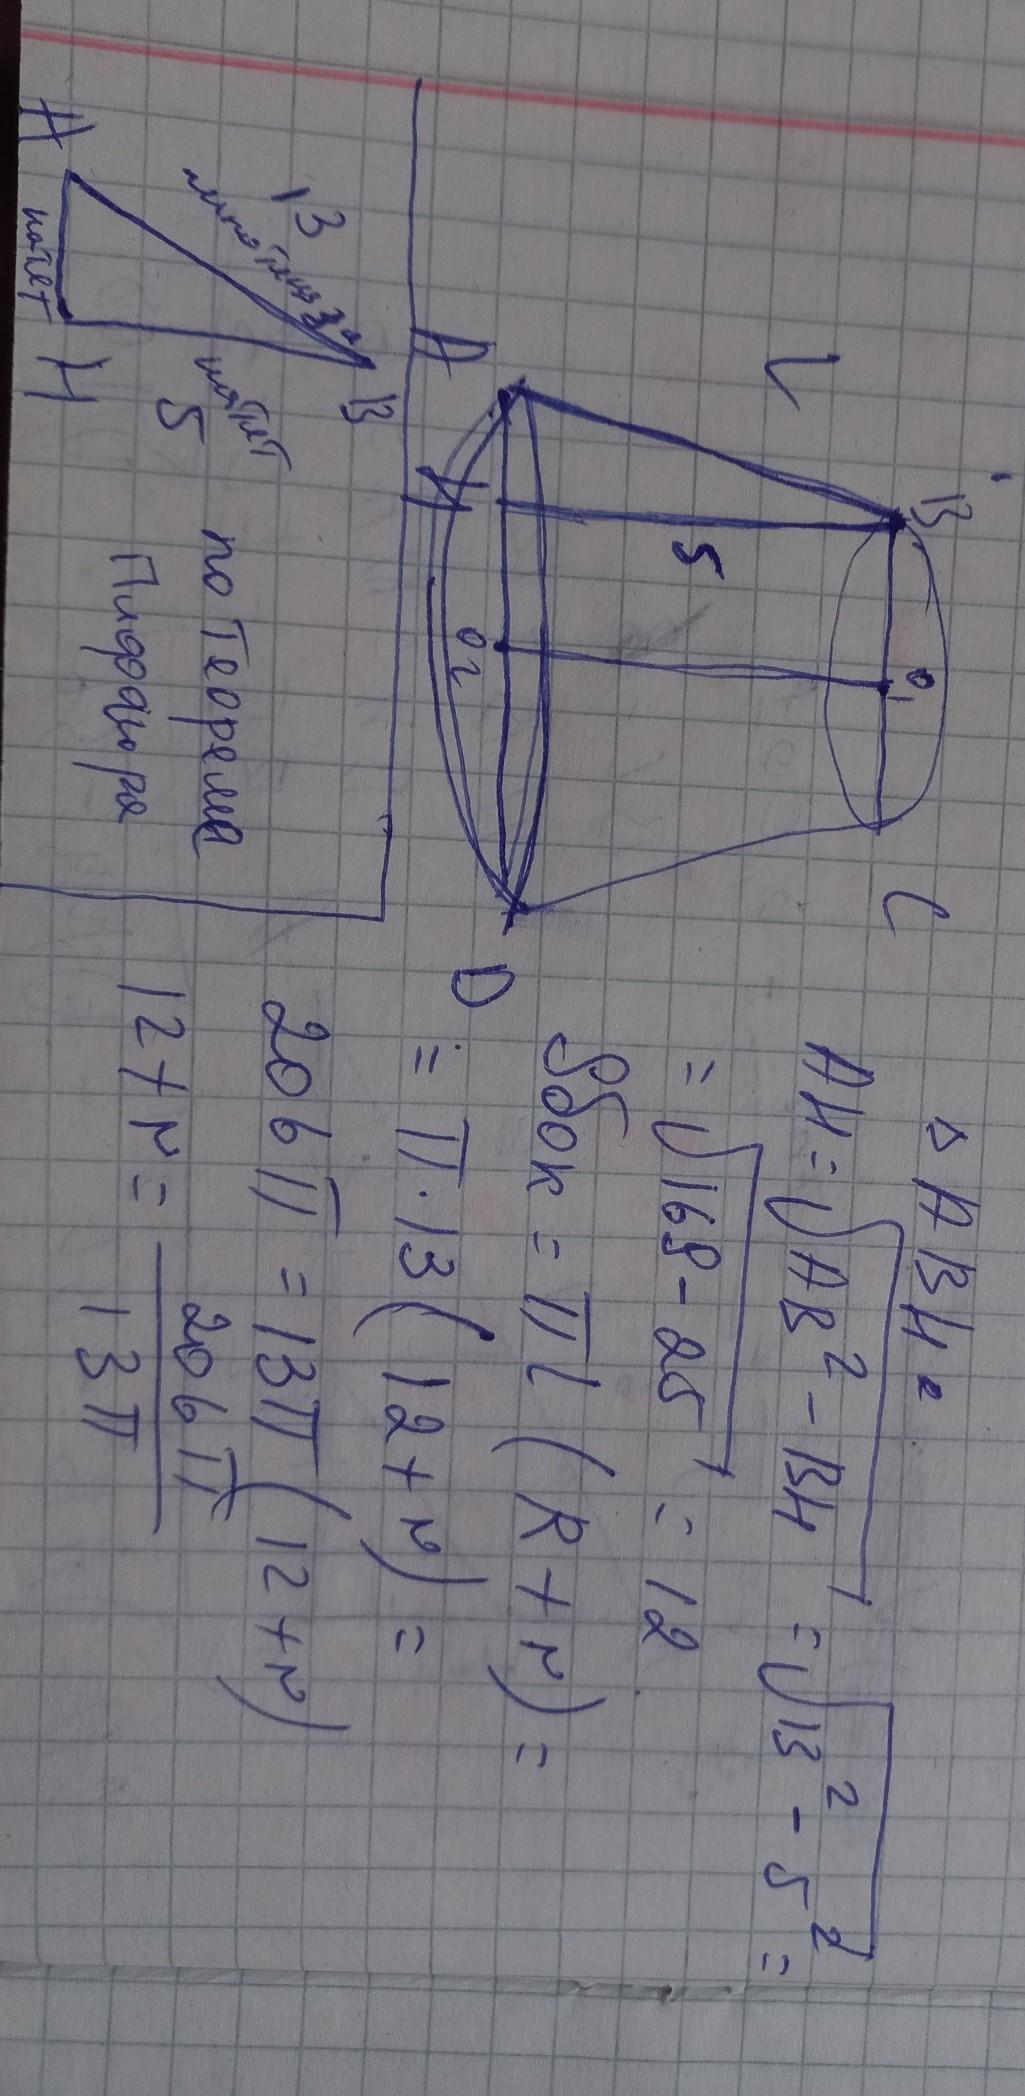 B
O₁
C
L
5
A
H
O₂
D
A
13
гипотенуза
B
катет
5
катет
H
по теореме
Пифагора
△ABH.
AH = √AB² - BH = √13² - 5² =
= √169 - 25 = 12
Sбок = πl (R + r) =
= π · 13 ( 12 + r) =
206π = 13π (12 + r)
12 + r = 206π
13π